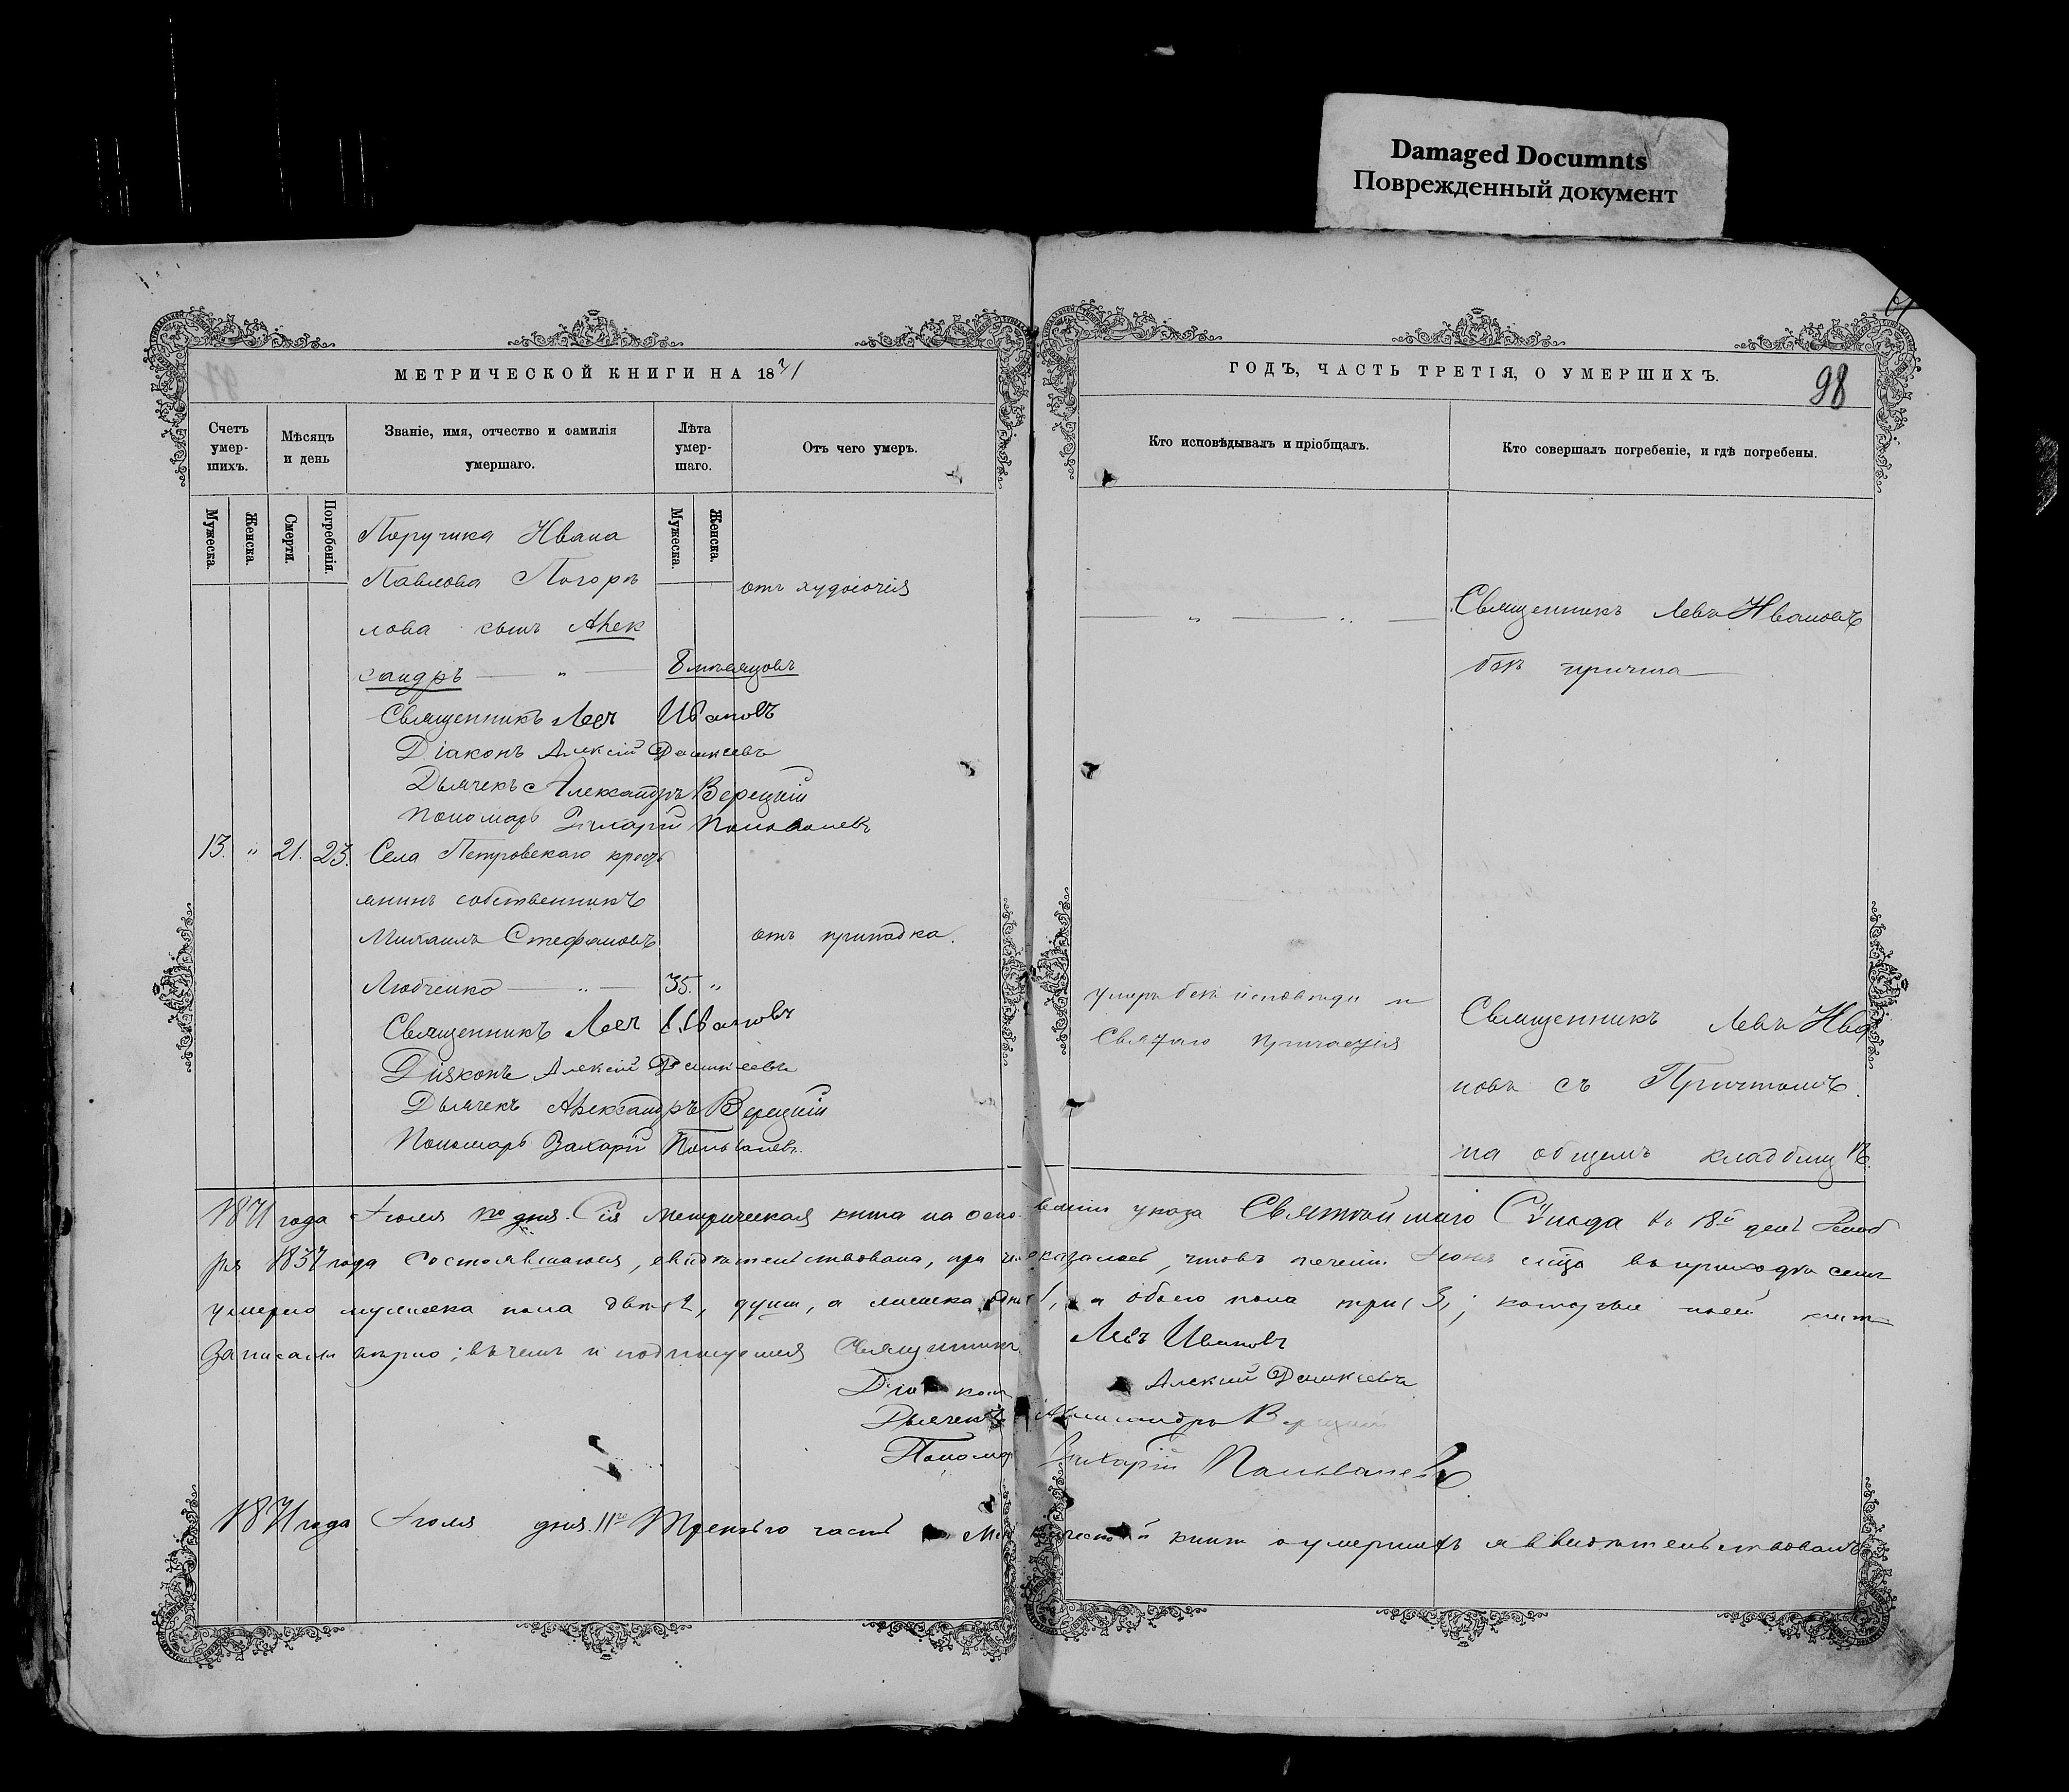 Damaged Documnts
Поврежденный документ
МЕТРИЧЕСКОЙ КНИГИ НА 1871
Счетъ умер-шихъ.
Мѣсяцъ и день
Званіе, имя, отчество и фамилія умершаго.
Лѣта умер-шаго.
Отъ чего умеръ.
Мужеска.
Женска.
Смерти.
Погребенія.
Мужеска.
Женска.
Поручика Ивана
Павлова Погорѣ
лова сынъ Алек
сандръ — " — 8 мѣсяцовъ
отъ худосочія
Священникъ Левъ Ивановъ
Діаконъ Алексій
Дьячекъ Александръ Верецкій
Пономарь Захарій
13. " 21. 23. Села Петровскаго кресть
янинъ собственникъ
Михаилъ Стефановъ отъ припадка.
Любченко — " — 35. "
Священникъ Левъ Ивановъ
Діяконъ Алексій
Дьячекъ Александръ Верецкій
Пономарь Захарій
ГОДЪ, ЧАСТЬ ТРЕТІЯ, О УМЕРШИХЪ.
98
Кто исповѣдывалъ и пріобщалъ.
Кто совершалъ погребеніе, и гдѣ погребены.
— " — " —
Священникъ Левъ Ивановъ
безъ причта —
умеръ безъ исповѣди и
Святаго причастія
Священникъ Левъ Ива
новъ съ Причтомъ.
на общемъ кладбищѣ.
1871 года Іюля 1го дня. Сія метрическая книга на осно ваніи указа Святѣйшаго Сѵнода въ 18й день Нояб
ря 1837 года состоявшагося, свидѣтельствована, при чемъ оказалось, что въ теченіи Іюня въ приходѣ семъ
умерло мужеска пола двѣ 2, души, а женска одна 1, а обоего пола три 3; которые въ сей
записаны вѣрно; въ чемъ и подписуемся Священникъ Левъ Ивановъ
Діаконъ Алексій
Дьячекъ Александръ Верецкій
Пономарь Захарій
1871 года Іюля дня 11го Третью часть Метрической книги о умершихъ свидѣтельствовалъ